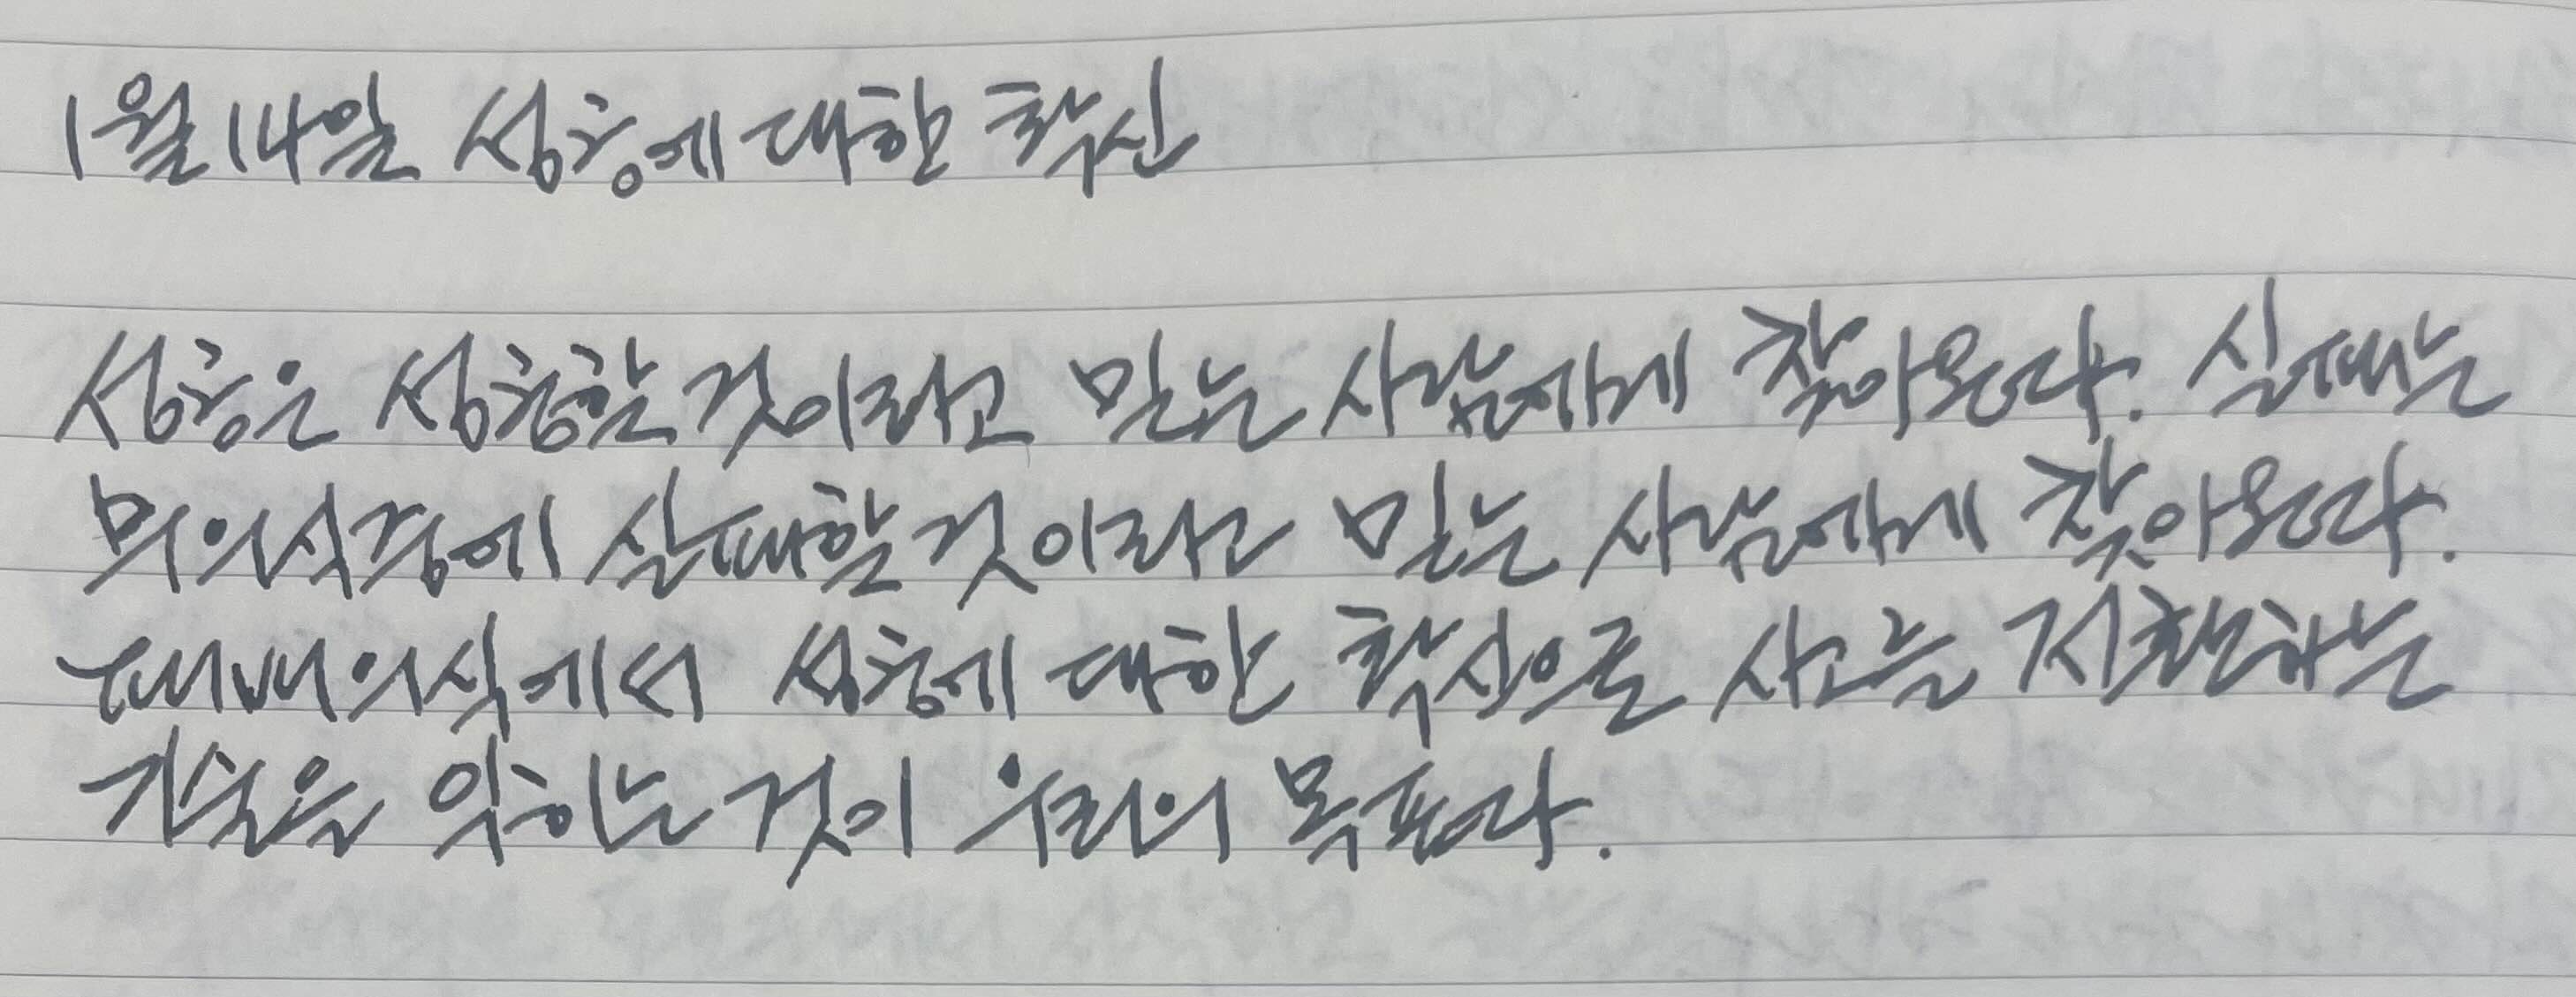 1월 14일 성공에 대한 확신
성공은 성공할 것이라고 믿는 사람에게 찾아온다. 실패는
무의식중에 실패할 것이라고 믿는 사람에게 찾아온다.
패배의식에서 성공에 대한 확신으로 사고를 전환하는
기술을 익히는 것이 우리의 목표다.